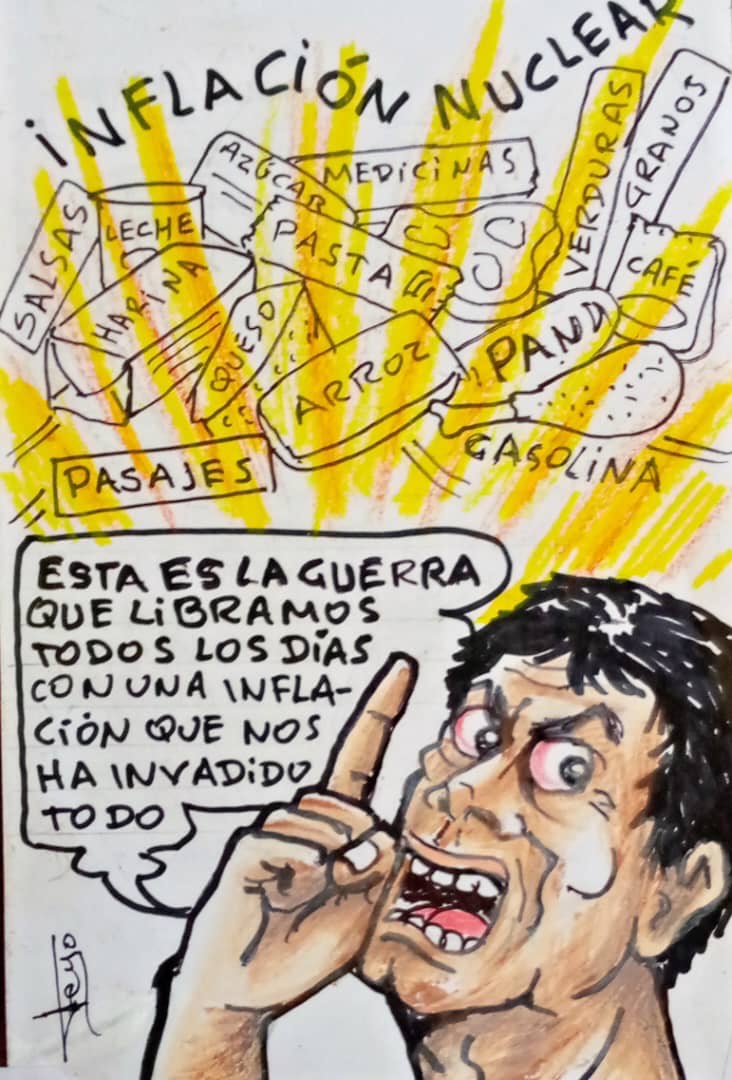 INFLACIÓN NUCLEAR
AZÚCAR
MEDICINAS
VERDURAS
GRANOS
SALSAS
LECHE
PASTA
CAFÉ
HARINA
QUESO
ARROZ
PAN
GASOLINA
PASAJES
ESTA ES LA GUERRA
QUE LIBRAMOS
TODOS LOS DÍAS
CON UNA INFLA-
CIÓN QUE NOS
HA INVADIDO
TODO